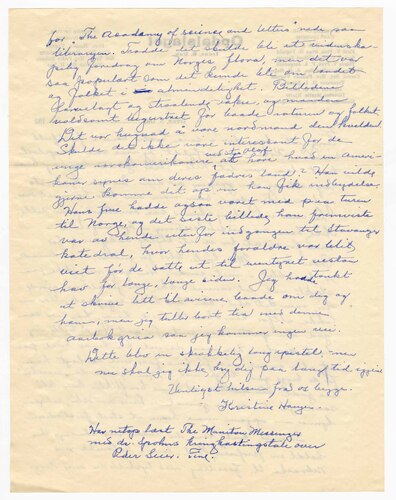 for "The Academy of science and letters" nede paa
librarien. Trodde det skulde bli ets videnska-
pelig foredrag om Norges flora, men det var
saa populært som det kunde bli om landet
og folket i almindelighet. Billedene
farvelagt og straalende vakre, og manden
voldsomt begeistret for baade naturen og folket
Det var hugnad i være nordmand den kvelden!
Skulde det ikke være interessant for de
unge norskamerikanere at høre hvad en ameri-
kaner synes om deres fædres land? Han vilde
gjerne komme dit op om han fik indbydelse.
Hans frue hadde ogsaa været med paa turen
til Norge, og det siste billede han fremviste
var av hende utenfor indgangen til Stavanger
katedral, hvor hendes forældre var blit
viet før de satte ut til eventyret vestan
hav for lange, lange siden. Jeg hadde tænkt
at skrive litt til avisene, baade om deg og
ham, men jeg taller bort tia med denne
arbok greia saa jeg kommer ingen vei.
Dette blev en skrækkelig lang epistel, men
nu skal jeg ikke by dig paa tanftid igjen
Venligst hilsen fra os begge.
Kristine Haugen.
Har netop læst The Manitou Messenger
med dr. Spohns kringkastingstale over
Peder Seier. Fine!